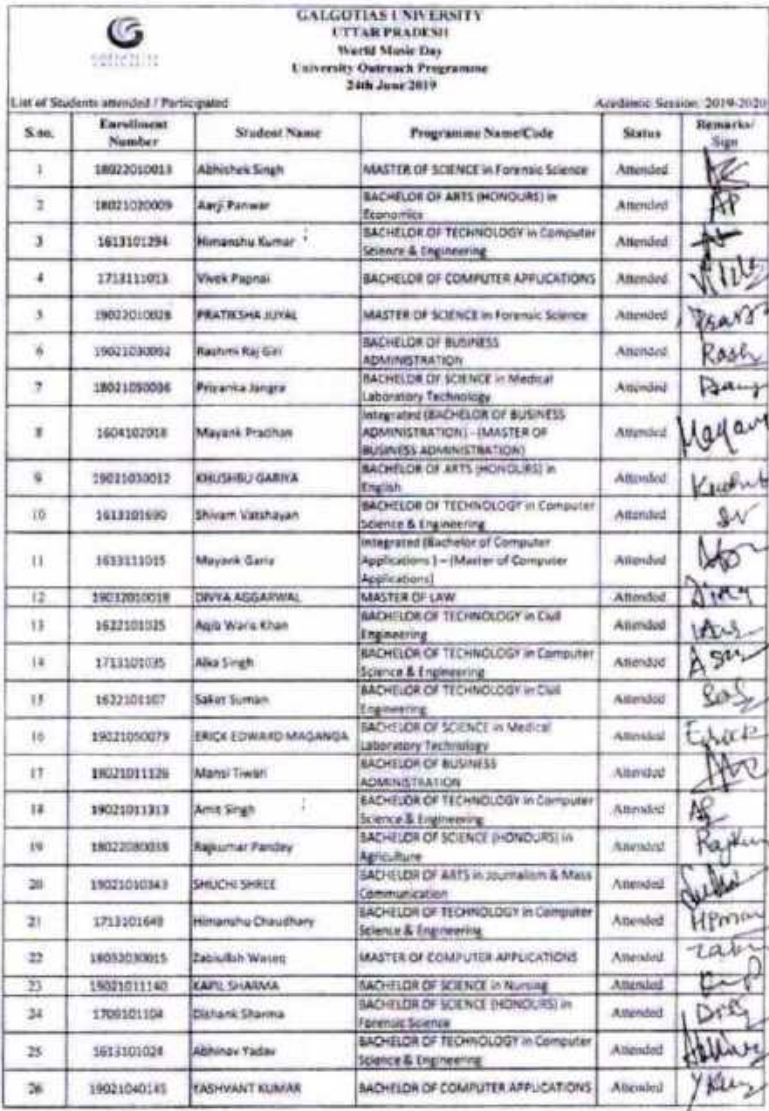 GALGOTIAS UNIVERSITY
UTTAR PRADESH
World Music Day
University Outreach Programme
24th June 2019
List of Students attended / Participated Academic Session: 2019-2020
S.no. Enrollment Number Student Name Programme Name/Code Status Remarks/ Sign
1 18022010013 Abhishek Singh MASTER OF SCIENCE in Forensic Science Attended
2 18021020009 Aarji Panwar BACHELOR OF ARTS (HONOURS) in Economics Attended AP
3 1613101294 Himanshu Kumar BACHELOR OF TECHNOLOGY in Computer Science & Engineering Attended
4 1713111013 Vivek Papnai BACHELOR OF COMPUTER APPLICATIONS Attended
5 19022010028 PRATIKSHA JUYAL MASTER OF SCIENCE in Forensic Science Attended
6 Rashmi Raj Giri BACHELOR OF BUSINESS ADMINISTRATION Attended Rash
7 Priyanka Jangra BACHELOR OF SCIENCE in Medical Laboratory Technology Attended
8 1604102018 Mayank Pradhan Integrated (BACHELOR OF BUSINESS ADMINISTRATION) - (MASTER OF BUSINESS ADMINISTRATION) Attended
9 19021030012 KHUSHBU GARIYA BACHELOR OF ARTS (HONOURS) in English Attended
10 1613101690 Shivam Vatshayan BACHELOR OF TECHNOLOGY in Computer Science & Engineering Attended SV
11 1613111015 Mayank Garia Integrated (Bachelor of Computer Applications) – (Master of Computer Applications) Attended
12 19032010018 DIVYA AGGARWAL MASTER OF LAW Attended
13 1622101025 Aqib Waris Khan BACHELOR OF TECHNOLOGY in Civil Engineering Attended
14 1713101035 Alka Singh BACHELOR OF TECHNOLOGY in Computer Science & Engineering Attended
15 1622101107 Saket Suman BACHELOR OF TECHNOLOGY in Civil Engineering Attended
16 19021050079 ERICK EDWARD MAGANGA BACHELOR OF SCIENCE in Medical Laboratory Technology Attended
17 18021011126 Mansi Tiwari BACHELOR OF BUSINESS ADMINISTRATION Attended
18 19021011313 Amit Singh BACHELOR OF TECHNOLOGY in Computer Science & Engineering Attended
19 18022080038 Rajkumar Pandey BACHELOR OF SCIENCE (HONOURS) in Agriculture Attended
20 19021010343 SHUCHI SHREE BACHELOR OF ARTS in Journalism & Mass Communication Attended
21 1713101649 Himanshu Chaudhary BACHELOR OF TECHNOLOGY in Computer Science & Engineering Attended
22 18032030015 Zabiullah Waseq MASTER OF COMPUTER APPLICATIONS Attended
23 19021011140 KAPIL SHARMA BACHELOR OF SCIENCE in Nursing Attended
24 1709101104 Dishank Sharma BACHELOR OF SCIENCE (HONOURS) in Forensic Science Attended
25 1613101024 Abhinav Yadav BACHELOR OF TECHNOLOGY in Computer Science & Engineering Attended
26 19021040145 YASHVANT KUMAR BACHELOR OF COMPUTER APPLICATIONS Attended